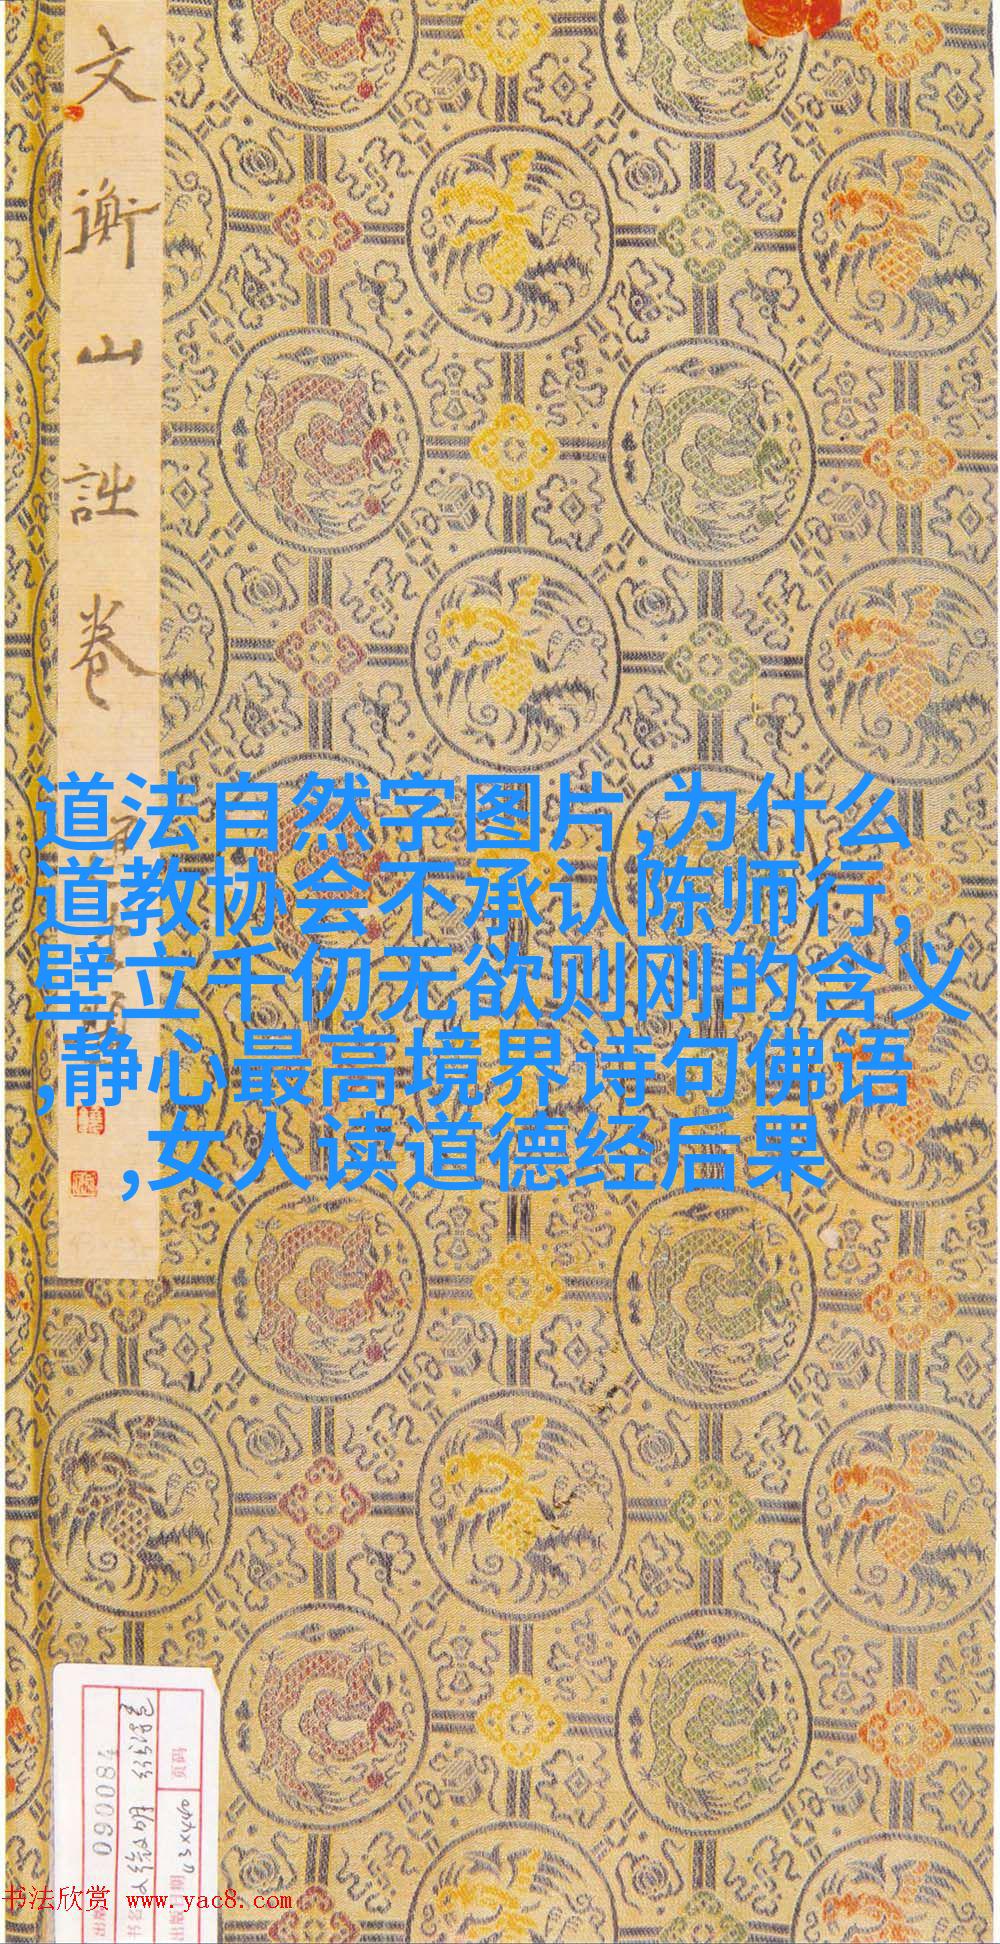 文衡山詩卷
道法自然字图片,为什么
道教协会不承认陈师行,
壁立千仞无欲则刚的含义
,静心最高境界诗句佛语
,女人读道德经后果
090084
页码
43x440
书法欣赏 www.yac8.com